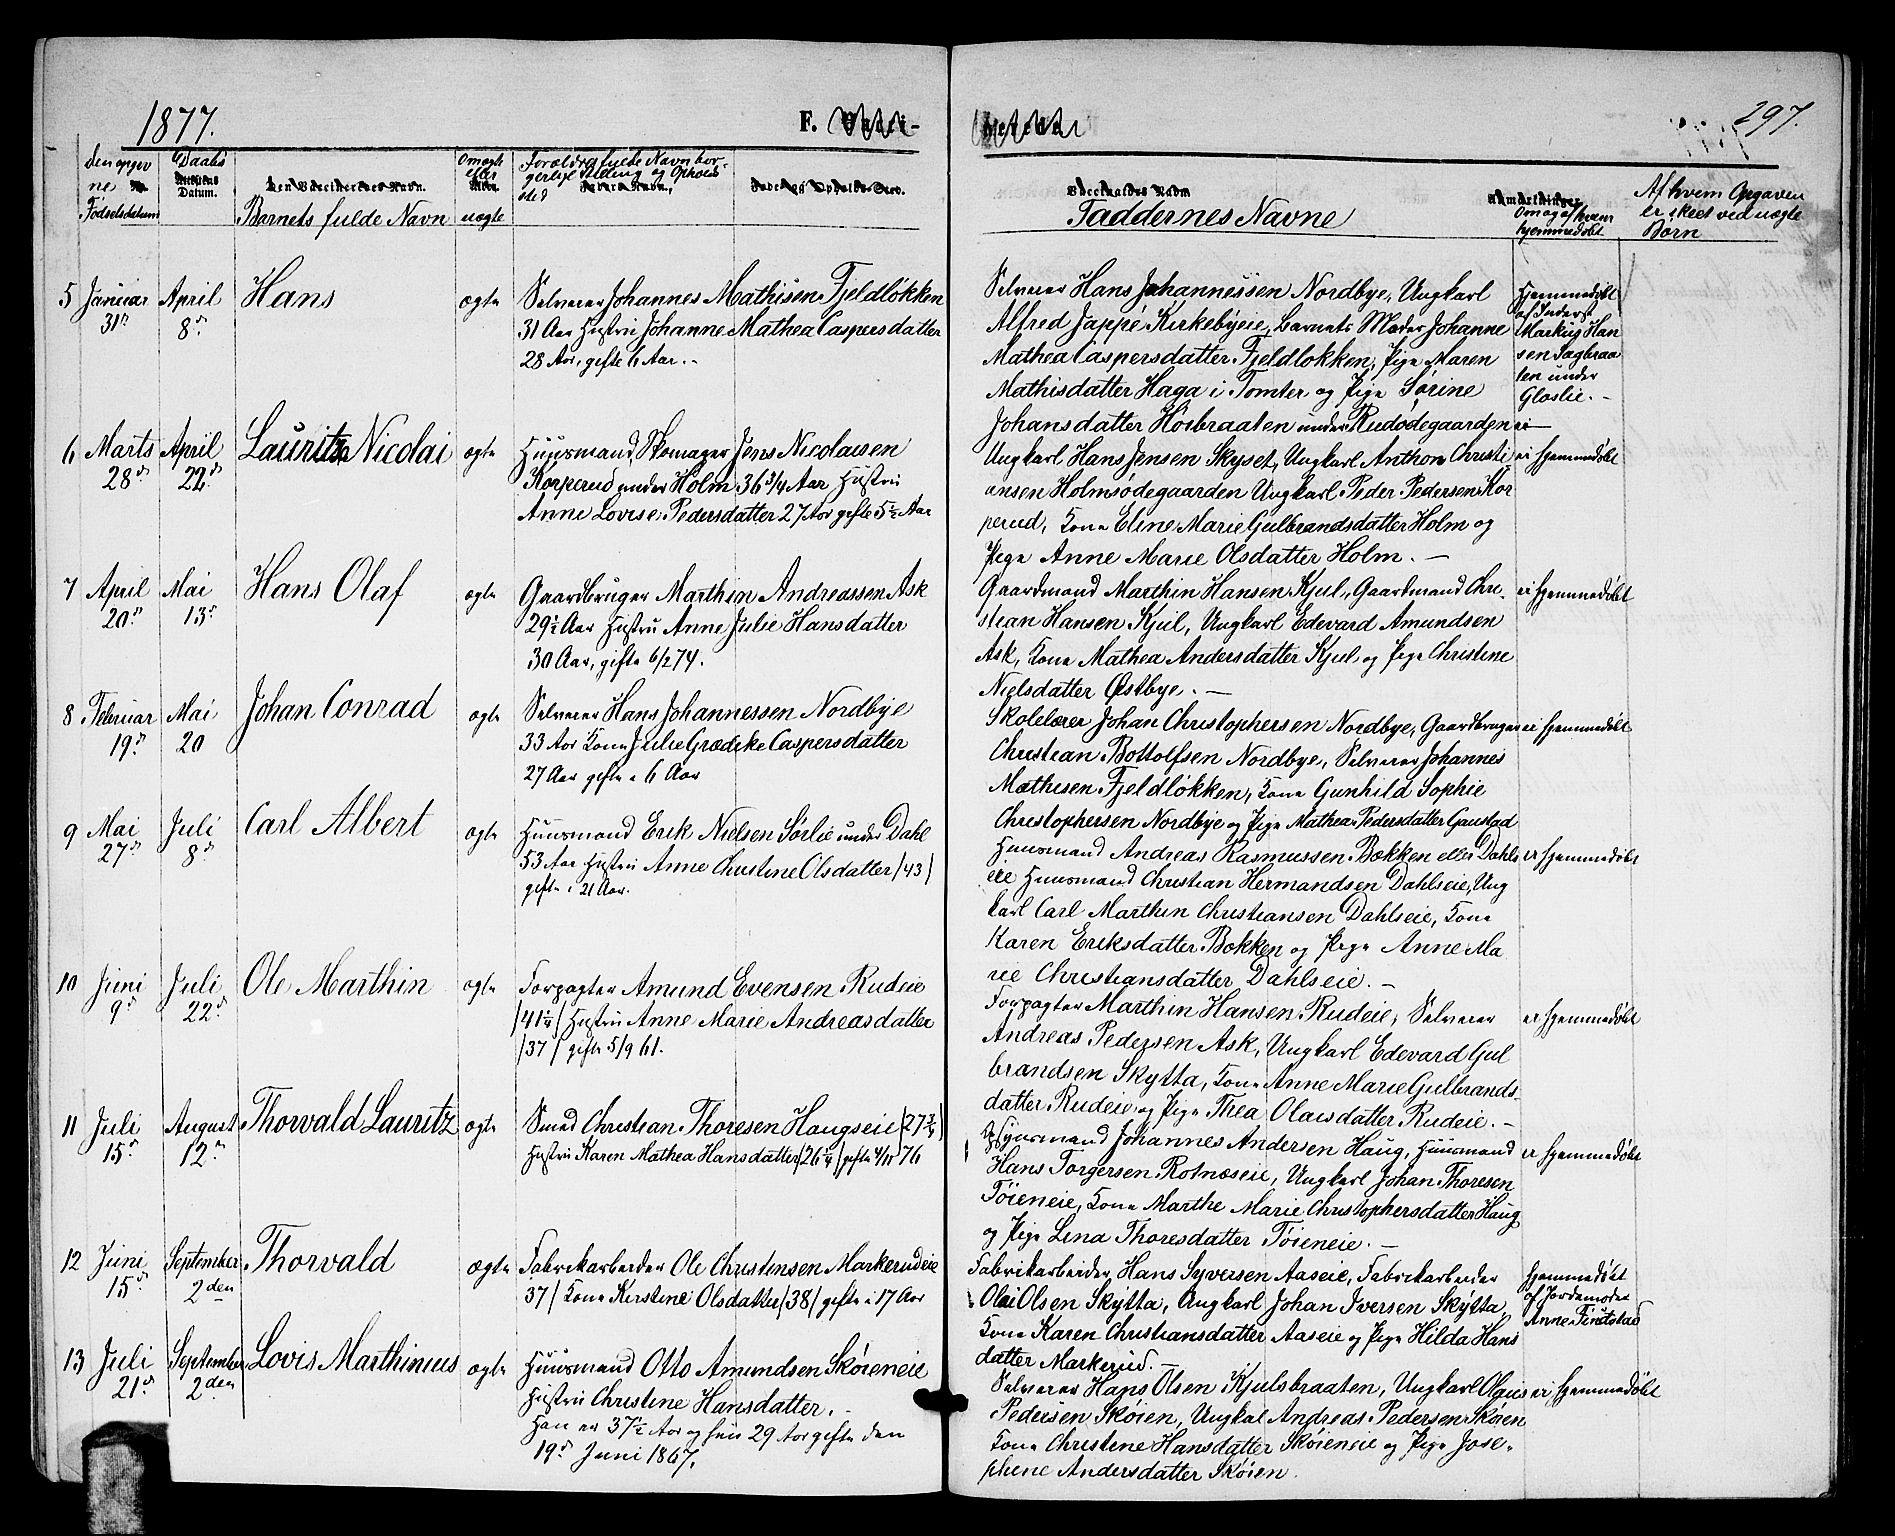 1877.
F.
297.
den opgivne Fødselsdatum
Daabs Datum.
Barnets fulde Navn
Om ægte eller uægte
Forældres fulde Navn borgerlige Stilling og Opholdssted
Faddernes Navne
Om og af hvem hjemmedøbt
Af hvem Opgaven er skeet ved uægte Børn
5 Januar 31te April 8de Hans ægte
Selveier Johannes Mathisen Fjeldløkken
31 Aar Hustru Johanne Mathea Caspersdatter
28 Aar, gifte 6 Aar. -
Selveier Hans Johannessen Nordbye, Ungkarl
Alfred Jappé Kirkebyeie, Barnets Moder Johanne
Mathea Caspersdatter Fjeldløkken, Pige Maren
Mathisdatter Haga i Tomter og Pige Sørine
Johansdatter Høsbraaten under Rudødegaarden
Hjemmedøbt
af Inderst
Markus Han
sen Sagbraa
ten under
Gloslie. -
6 Marts 28de April 22de Lauritz Nicolai ægte
Huusmand, Skomager Jens Nicolaisen
Korperud under Holm 36 3/4 Aar Hustru
Anne Lovise Pedersdatter 27 Aar gifte 5 1/2 Aar
Ungkarl Hans Jensen Skyset, Ungkarl Anthon Christi
ansen Holmsødegaarden Ungkarl Peder Pedersen Kor
perud, Kone Eline Marie Gulbrandsdatter Holm og
Pige Anne Marie Olsdatter Holm. -
ei hjemmedøbt
7 April 20de Mai 13de Hans Olaf ægte
Gaardbruger Marthin Andreassen Ask
29 1/2 Aar Hustru Anne Julie Hansdatter
30 Aar, gifte 6/2 74.
Gaardmand Marthin Hansen Kjul, Gaardmand Chri-
stian Hansen Kjul, Ungkarl Edevard Amundsen
Ask, Kone Mathea Andersdatter Kjul og Pige Christine
Nielsdatter Østbye. -
ei hjemmedøbt
8 Februar 19de Mai 20 Johan Conrad ægte
Selveier Hans Johannessen Nordbye
33 Aar Kone Julie Grædske Caspersdatter
27 Aar gifte i 6 Aar
Skolelærer Johan Christophersen Nordbye, Gaardbruger
Christian Bottolfsen Nordbye, Selveier Johannes
Mathisen Fjeldløkken, Kone Gunhild Sophie
Christophersen Nordbye og Pige Mathea Pedersdatter Gaustad
ei hjemmedøbt
9 Mai 27de Juli 8de Carl Albert ægte
Huusmand Erik Nielsen Sørlie under Dahl
53 Aar Hustru Anne Christine Olsdatter /43/
gifte i 21 Aar.
Huusmand Andreas Rasmussen Bækken eller Dahls
eie Huusmand Christian Hermandsen Dahlseie, Ung
karl Carl Marthin Christiansen Dahlseie, Kone
Karen Eriksdatter Bækken og Pige Anne Ma
rie Christiansdatter Dahlseie. -
er hjemmedøbt
10 Juni 9de Juli 22de Ole Marthin ægte
Forpagter Amund Evensen Rudeie
/41 1/4/ Hustru Anne Marie Andreasdatter
/37/ gifte 5/9 61.
Forpagter Marthin Hansen Rudeie, Selveier
Andreas Pedersen Ask, Ungkarl Edevard Gul
brandsen Skytta, Kone Anne Marie Gulbrands-
datter Rudeie og Pige Thea Olaisdatter Rudeie. -
er hjemmedøbt
11 Juli 15de August 12te Thorvald Lauritz ægte
Smed Christian Thoresen Haugseie /27 3/4/
Hustru Karen Mathea Hansdatter /26 1/4/ gifte 4/11 76
Huusmand Johannes Andersen Haug, Huusmand
Hans Torgersen Rotnæseie, Ungkarl Johan Thoresen
Tøieneie, Kone Marthe Marie Christophersdatter Haug
og Pige Lina Thoresdatter Tøieneie. -
er hjemmedøbt
12 Juni 15de September 2den Thorvald ægte
Fabrikarbeider Ole Christensen Markerudeie
37/ Kone Kirstine Olsdatter /38/ gifte i 17 Aar
Fabrikarbeider Hans Syversen Aaseie, Fabrikarbeider
Olai Olsen Skytta, Ungkarl Johan Iversen Skytta,
Kone Karen Christiansdatter Aaseie og Pige Hilda Hans
datter Markerud. -
hjemmedøbt
af Jordemoder
Anne
13 Juli 21de September 2den Lovis Marthinius ægte
Huusmand Otto Amundsen Skøieneie
Hustru Christine Hansdatter. -
Han er 37 1/2 Aar og hun 29 Aar gifte den
19de Juni 1867.
Selveier Hans Olsen Kjulsbraaten, Ungkarl Olaus
Pedersen Skøien, Ungkal Andreas Pedersen Skøien
Kone Christine Hansdatter Skøieneie og Pige Jose-
phine Andersdatter Skøien.
ei hjemmedøbt